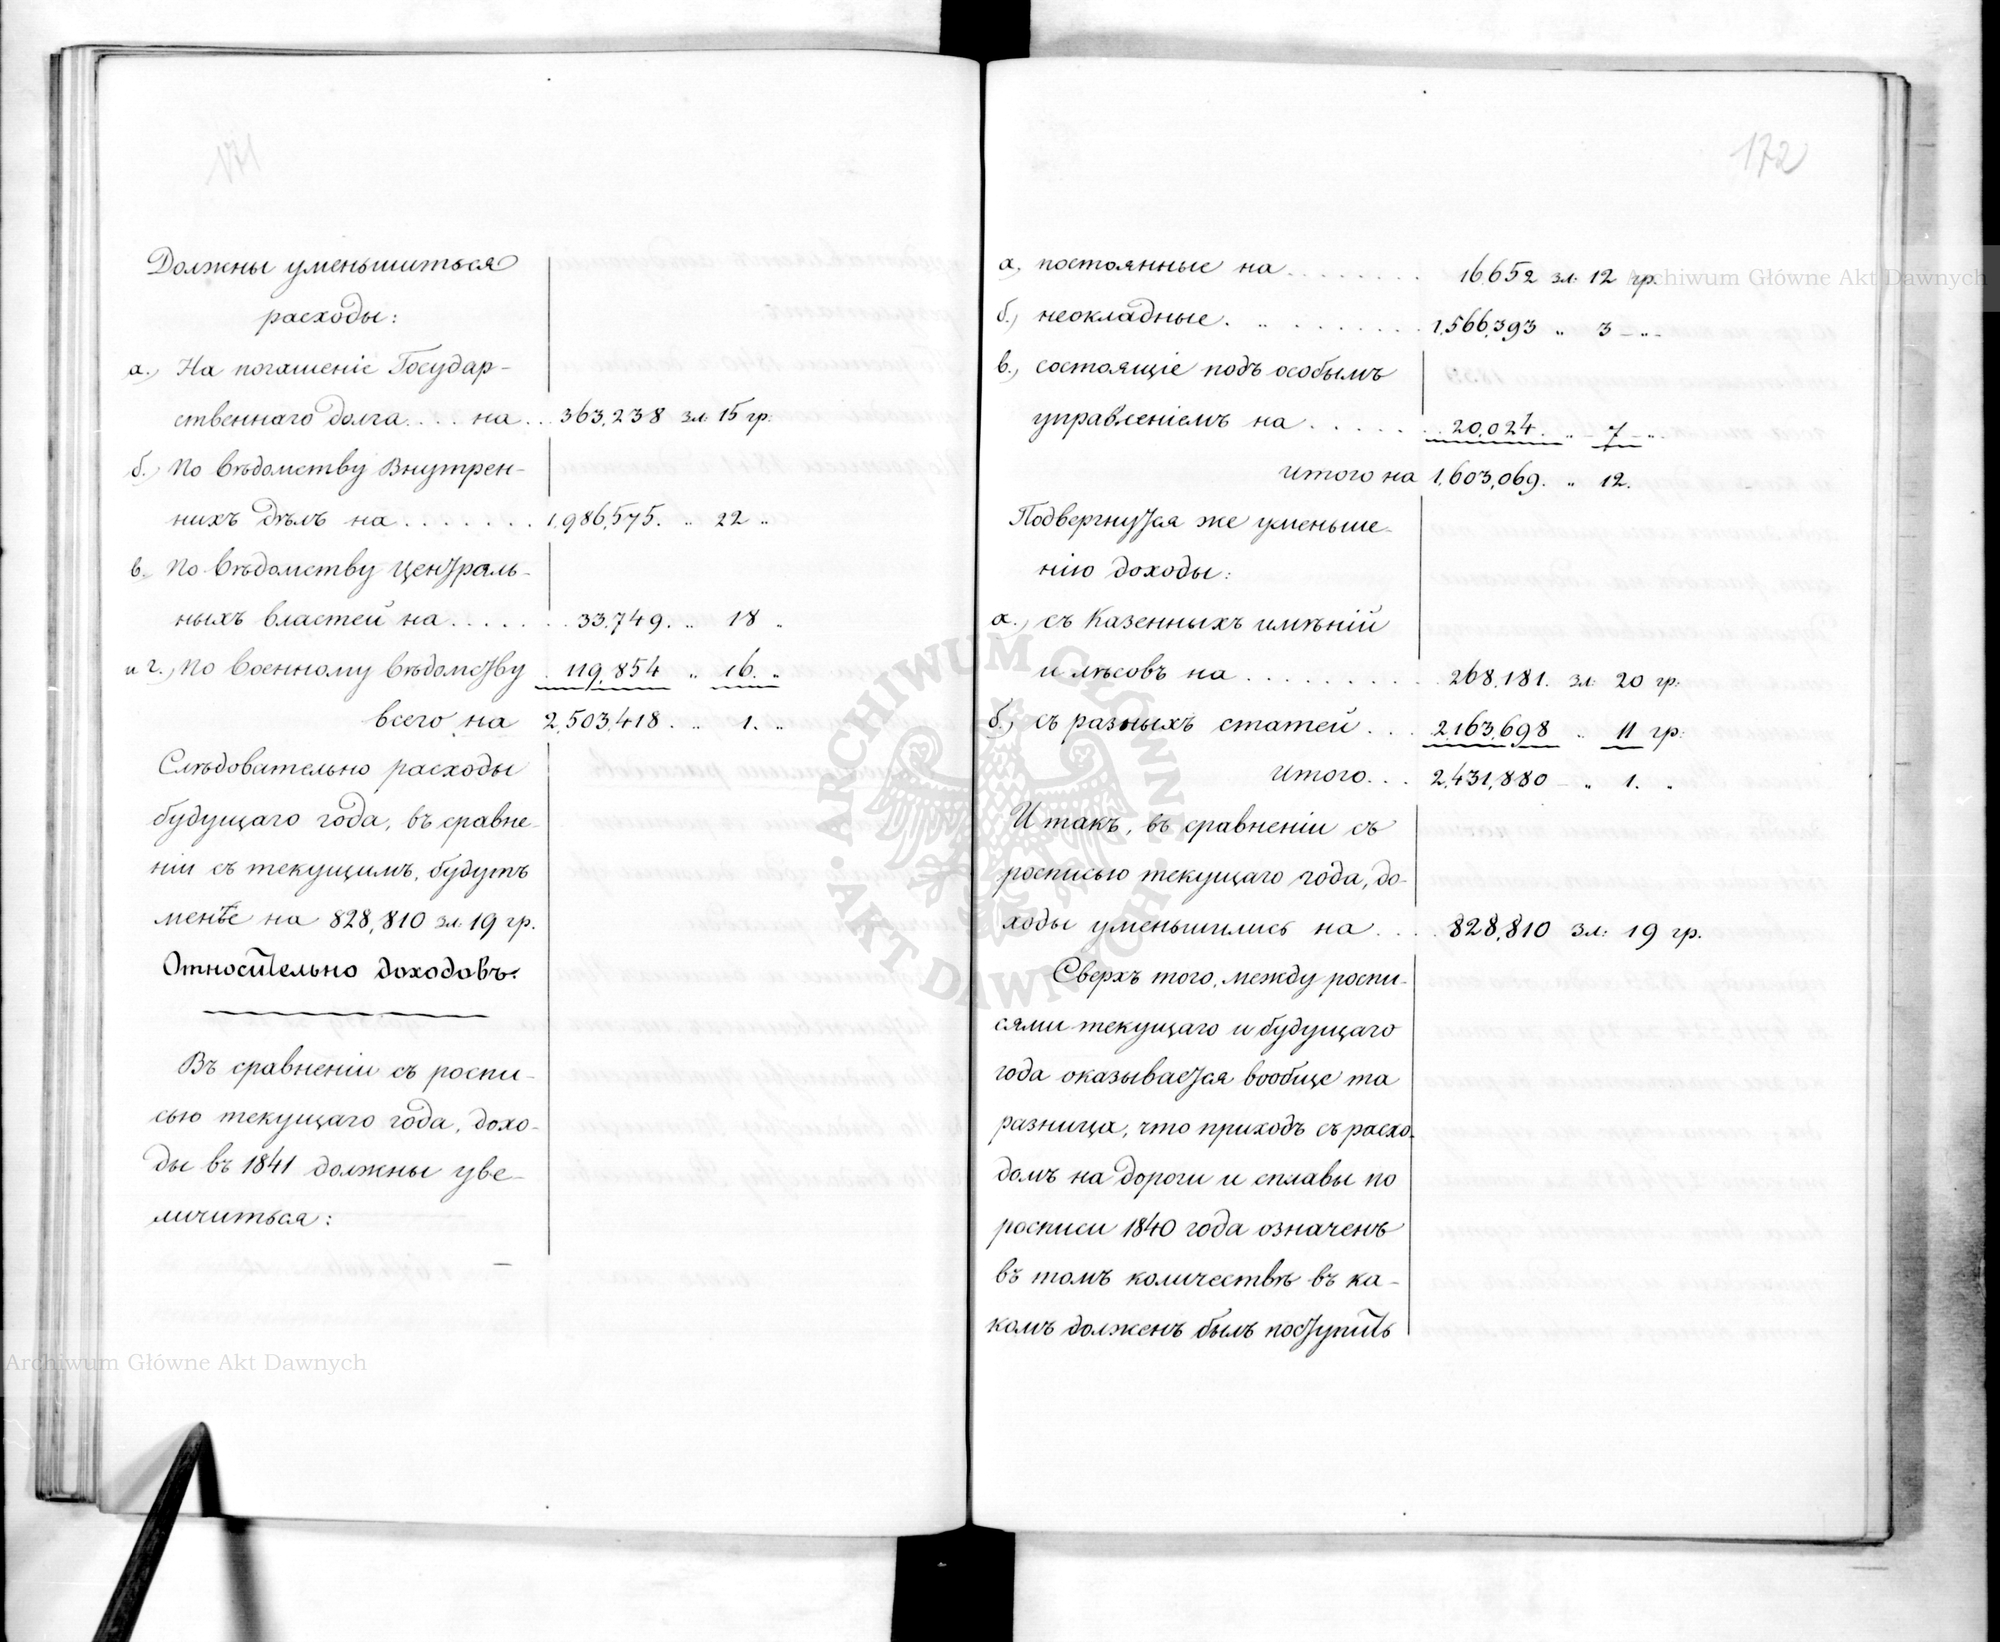 171
Должны уменьшиться
расходы:
а., На погашеніе Государ-
ственнаго долга.... на... 363,238 зл: 15 гр:
б., По вѣдомству Внутрен-
нихъ дѣлъ на....... 1,986,575. „ 22 „
в., По вѣдомству Централь-
ныхъ властей на....... 33,749. „ 18 „
и г., По Военному вѣдомству . 119,854 „ 16. „
всего на 2,503,418. „ 1. „
Слѣдовательно расходы
будущаго года, въ сравне-
ніи съ текущимъ, будутъ
менѣе на 828,810 зл: 19 гр.
Относительно доходовъ.
Въ сравненіи съ роспи-
сью текущаго года, дохо-
ды въ 1841 должны уве-
личиться:
172
а, постоянные на........ 16,652 зл: 12 гр.
б., неокладные. „ ....... 1,566,393 „ 3 - „ -
в., состоящіе подъ особымъ
управленіемъ на....... 20,024. „ 7 - „ -
Итого на 1,603,069. „ 12.
Подвергнутся же уменьше-
нію доходы:
а., съ Казенныхъ имѣній
и лѣсовъ на......... 268,181. зл: 20 гр:
б., съ разныхъ статей... 2,163,698 „ 11 гр:
Итого... 2,431,880 - „ 1. „
И такъ, въ сравненіи съ
росписью текущаго года, до-
ходы уменьшились на... 828,810 зл: 19 гр.
Сверхъ того, между роспи-
сями текущаго и будущаго
года оказывается вообще та
разница, что приходъ съ расхо-
домъ на дороги и сплавы по
росписи 1840 года означенъ
въ томъ количествѣ въ ка-
комъ долженъ былъ поступить
Archiwum Główne Akt Dawnych
Archiwum Główne Akt Dawnych
ARCHIWUM GŁÓWNE AKT DAWNYCH